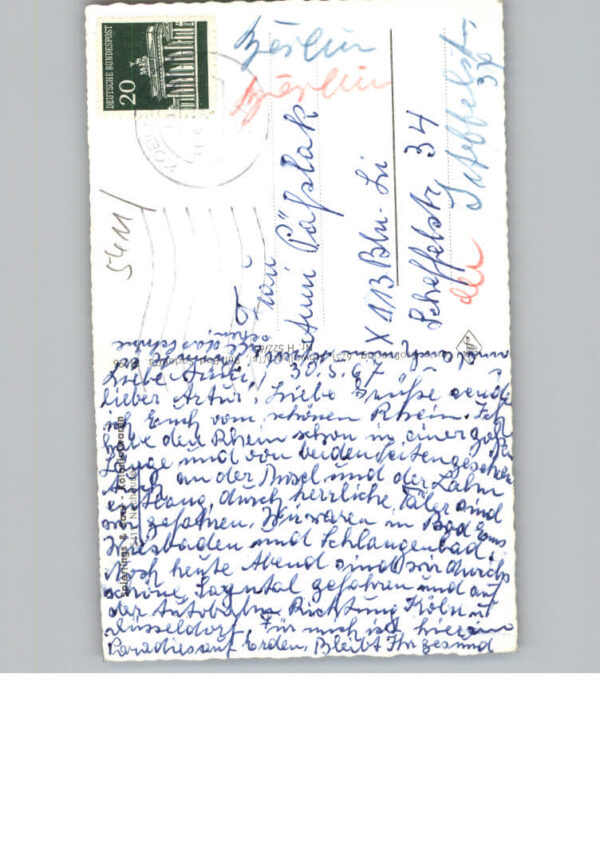 DEUTSCHE BUNDESPOST
20
Berlin
Berlin
5411/
Frau
Anni
X 113 Bln - Li
Scheffelstr. 34
Scheffelst.
Liebe Anni, 30.5.67
lieber Artur! Liebe Grüße sende
ich Euch vom schönen Rhein. Ich
habe den Rhein schon in einer
Länge und von beiden Seiten gesehen
Auch an der Mosel und der Lahn
entlang, durch herrliche Täler sind
wir gefahren. Wir waren in Bad Ems
Wiesbaden und Schlangenbad.
Noch heute Abend sind wir durchs
schöne Sayntal gefahren und auf
der Autobahn Richtung Köln u
Düsseldorf. Für mich ist hier ein
Paradies auf Erden. Bleibt Ihr gesund